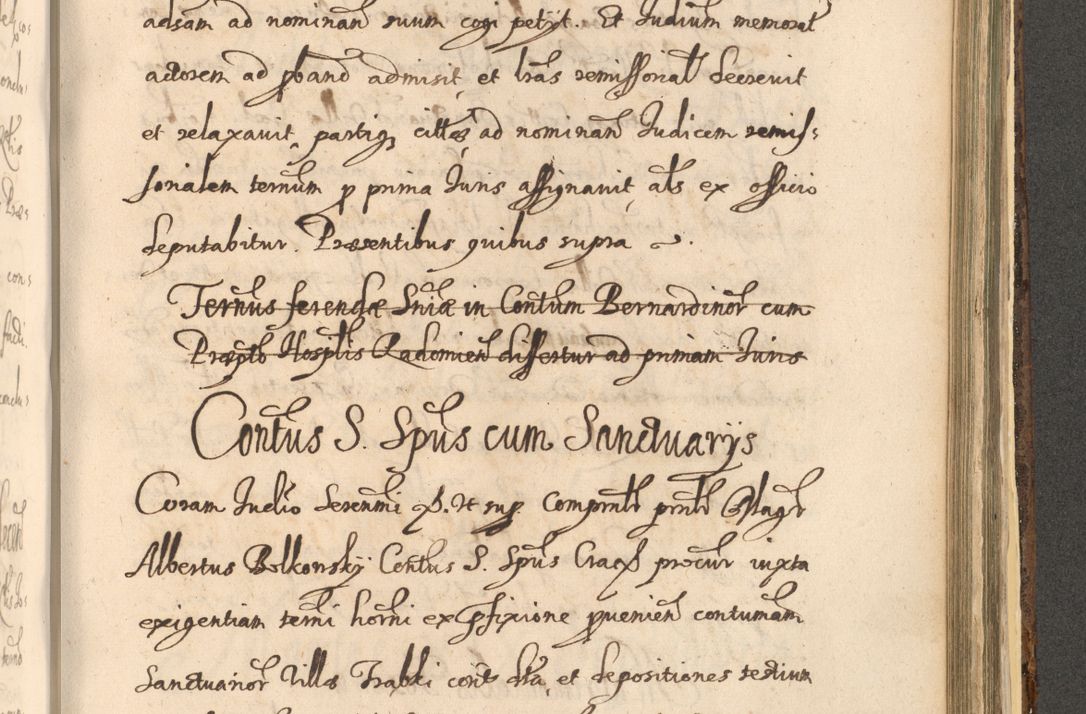 adsam ad nominan suum cogi petyt. Et Iudium memorat
actorem ad pband admisit, et lras remissorial decrevit
et relaxavit, partiq cittos ad nominan Iudicem remis-
sorialem ternum p prima Iuris assignavit, als ex officio
deputabitur. Præsentibus quibus supra
Ternus ferendæ Sniæ in Contum Bernardinor cum
Præpto Hosplis Radomien differtur ad primam Iuris
Contus S. Spus cum Sanctuarijs
Coram Iudio Serenmi P. Et sup. Comprnte prnte Magr
Albertus Bolkonsky Contus S. Spus Crac procur iuxta
exigentiam terni horni ex pfixione pvenien contumam
Sanctuarior Villæ Trabki cont dta, et depositiones testium